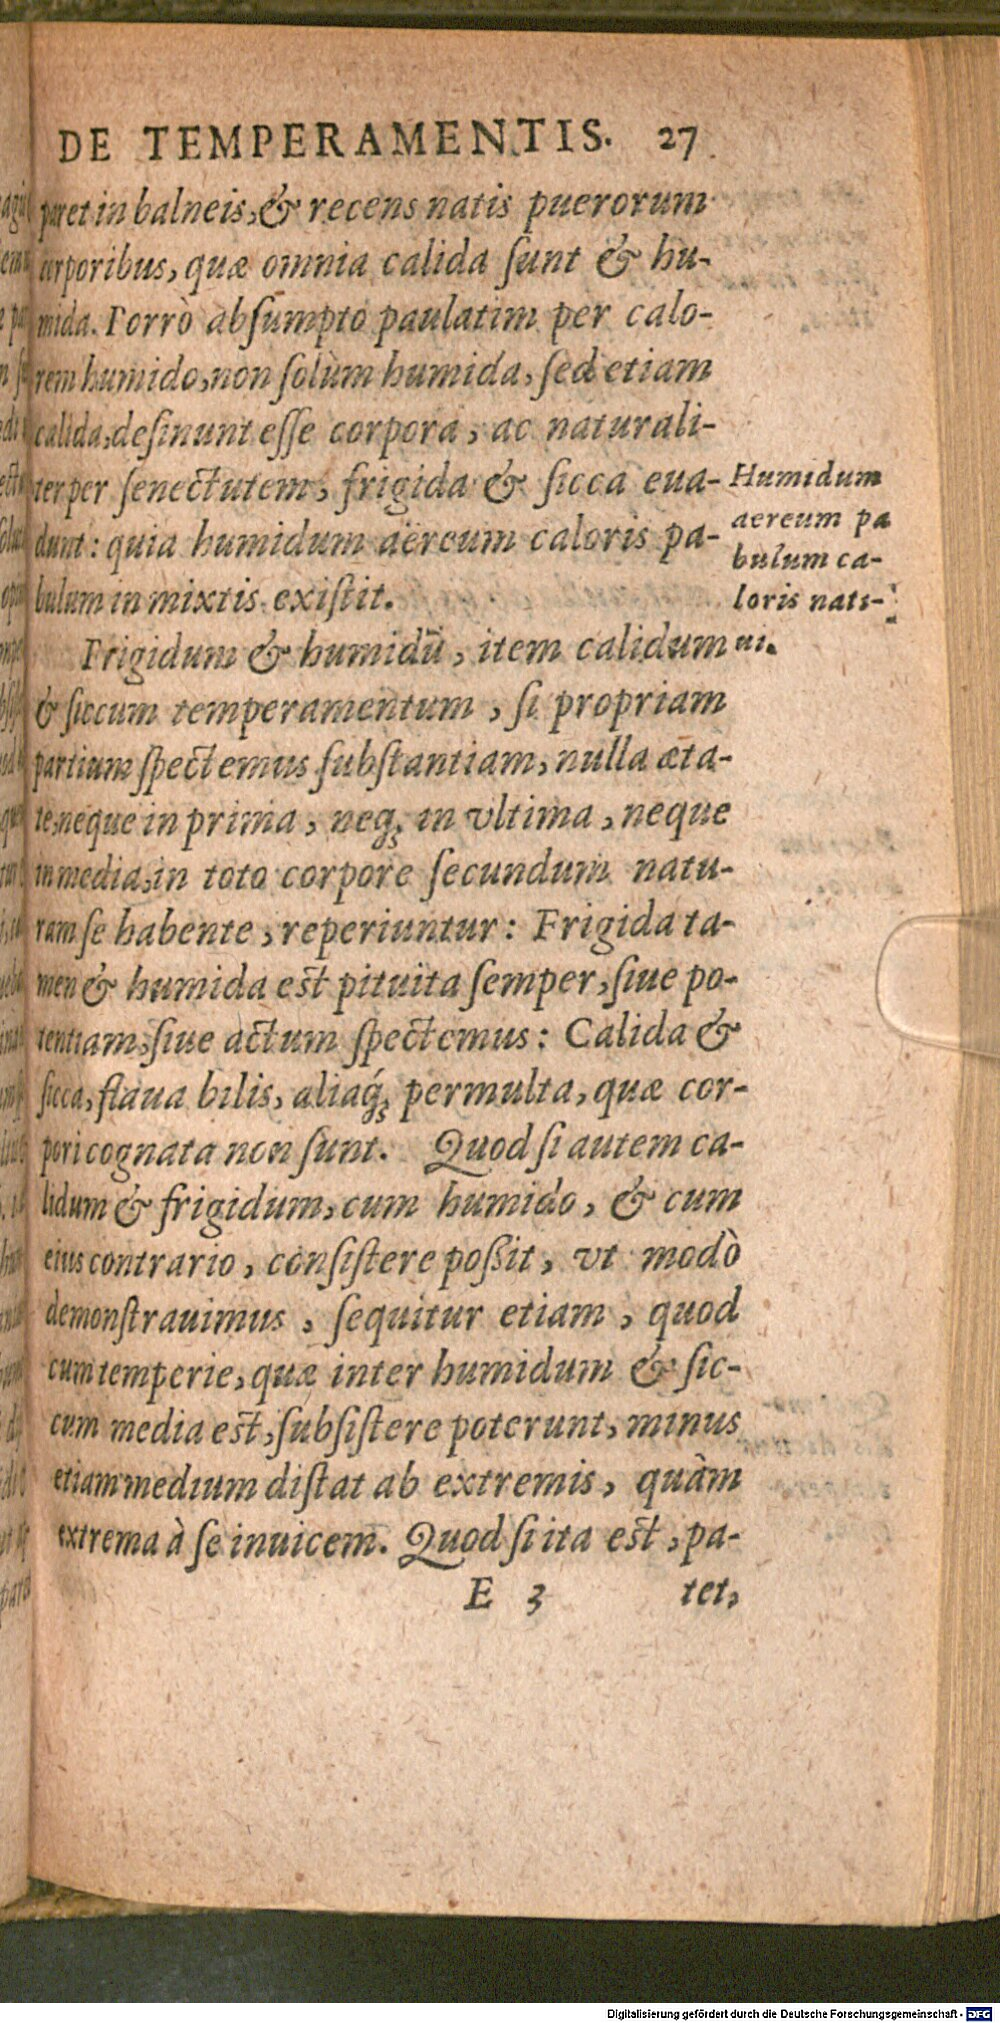 DE TEMPERAMENTIS. 27
paret in balneis, & recens natis puerorum
corporibus, quæ omnia calida ſunt & hu-
mida. Porrò abſumpto paulatim per calo-
rem humido, non ſolùm humida, ſed etiam
calida, deſinunt eſſe corpora, ac naturali-
ter per ſenectutem, frigida & ſicca eua-
dunt: quia humidum aëreum caloris pa-
bulum in mixtis exiſtit.
Humidum
aereum pa
bulum ca-
loris nati-
ui.
Frigidum & humidū, item calidum
& ſiccum temperamentum, ſi propriam
partium ſpectemus ſubſtantiam, nulla æta-
te, neque in prima, neq; in vltima, neque
in media, in toto corpore ſecundum natu-
ram ſe habente, reperiuntur: Frigida ta-
men & humida est pituita ſemper, ſiue po-
tentiam, ſiue actum ſpectemus: Calida &
ſicca, flaua bilis, aliaq́; permulta, quæ cor-
pori cognata non ſunt. Quod ſi autem ca-
lidum & frigidum, cum humido, & cum
eius contrario, conſiſtere poßit, vt modò
demonſtrauimus, ſequitur etiam, quod
cum temperie, quæ inter humidum & ſic-
cum media est, ſubſiſtere poterunt, minus
etiam medium diſtat ab extremis, quàm
extrema à ſe inuicem. Quod ſi ita est, pa-
E 3 tet,
Digitalisierung gefördert durch die Deutsche Forschungsgemeinschaft - DFG